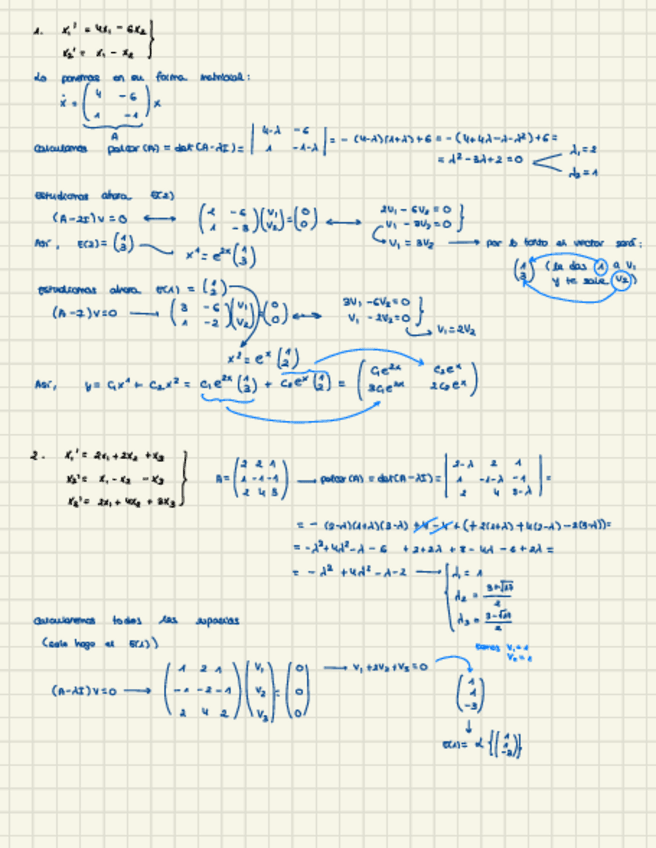 1. x₁' = 4x₁ - 6x₂
x₂' = x₁ - x₂ }
Lo ponemos en su forma matricial:
ẋ = (4 -6; 1 -1) x
A
Calculamos polcar(A) = det(A-λI) = |4-λ -6; 1 -1-λ| = -(4-λ)(1+λ)+6 = -(4+4λ-λ-λ²)+6 =
= λ²-3λ+2=0 λ₁=2
λ₂=1
Estudiamos ahora E(2)
(A-2I)v=0 ⟷ (2 -6; 1 -3)(v₁; v₂)=(0; 0) ⟷ 2v₁-6v₂=0
v₁-3v₂=0 }
Así, E(2)=(1; 3) v₁=3v₂ ⟶ por lo tanto el vector será:
x¹=e²ˣ(1; 3) (1; 3) (le das 1 a v₁
y te sale v₂)
Estudiamos ahora E(1) = (1; 2)
(A-I)v=0 ⟶ (3 -6; 1 -2)(v₁; v₂)=(0; 0) ⟷ 3v₁-6v₂=0
v₁-2v₂=0 }
v₁=2v₂
x²=eˣ(1; 2)
Así, y = c₁x¹ + c₂x² = c₁e²ˣ(1; 3) + c₂eˣ(1; 2) = (c₁e²ˣ c₂eˣ; 3c₁e²ˣ 2c₂eˣ)
2. x₁' = 2x₁+2x₂+x₃
x₂' = x₁-x₂-x₃
x₃' = 2x₁+4x₂+3x₃ }
A=(2 2 1; 1 -1 -1; 2 4 3) ⟶ polcar(A) = det(A-λI) = |2-λ 2 1; 1 -1-λ -1; 2 4 3-λ| =
= -(2-λ)(1+λ)(3-λ) +4-4+(+2(1+λ)+4(2-λ)-2(3-λ))=
= -λ³+4λ²-λ-6 +2+2λ+8-4λ-6+2λ =
= -λ³+4λ²-λ-2 ⟶ { λ₁=1
λ₂=(3+√17)/2
λ₃=(3-√17)/2
Calcularemos todos los espacios
(solo hago el E(1))
tomas v₁=1
v₂=1
(A-λI)v=0 ⟶ (1 2 1; -1 -2 -1; 2 4 2)(v₁; v₂; v₃)=(0; 0; 0) ⟶ v₁+2v₂+v₃=0 (1; 1; -3)
E(1)= L{(1; 1; -3)}